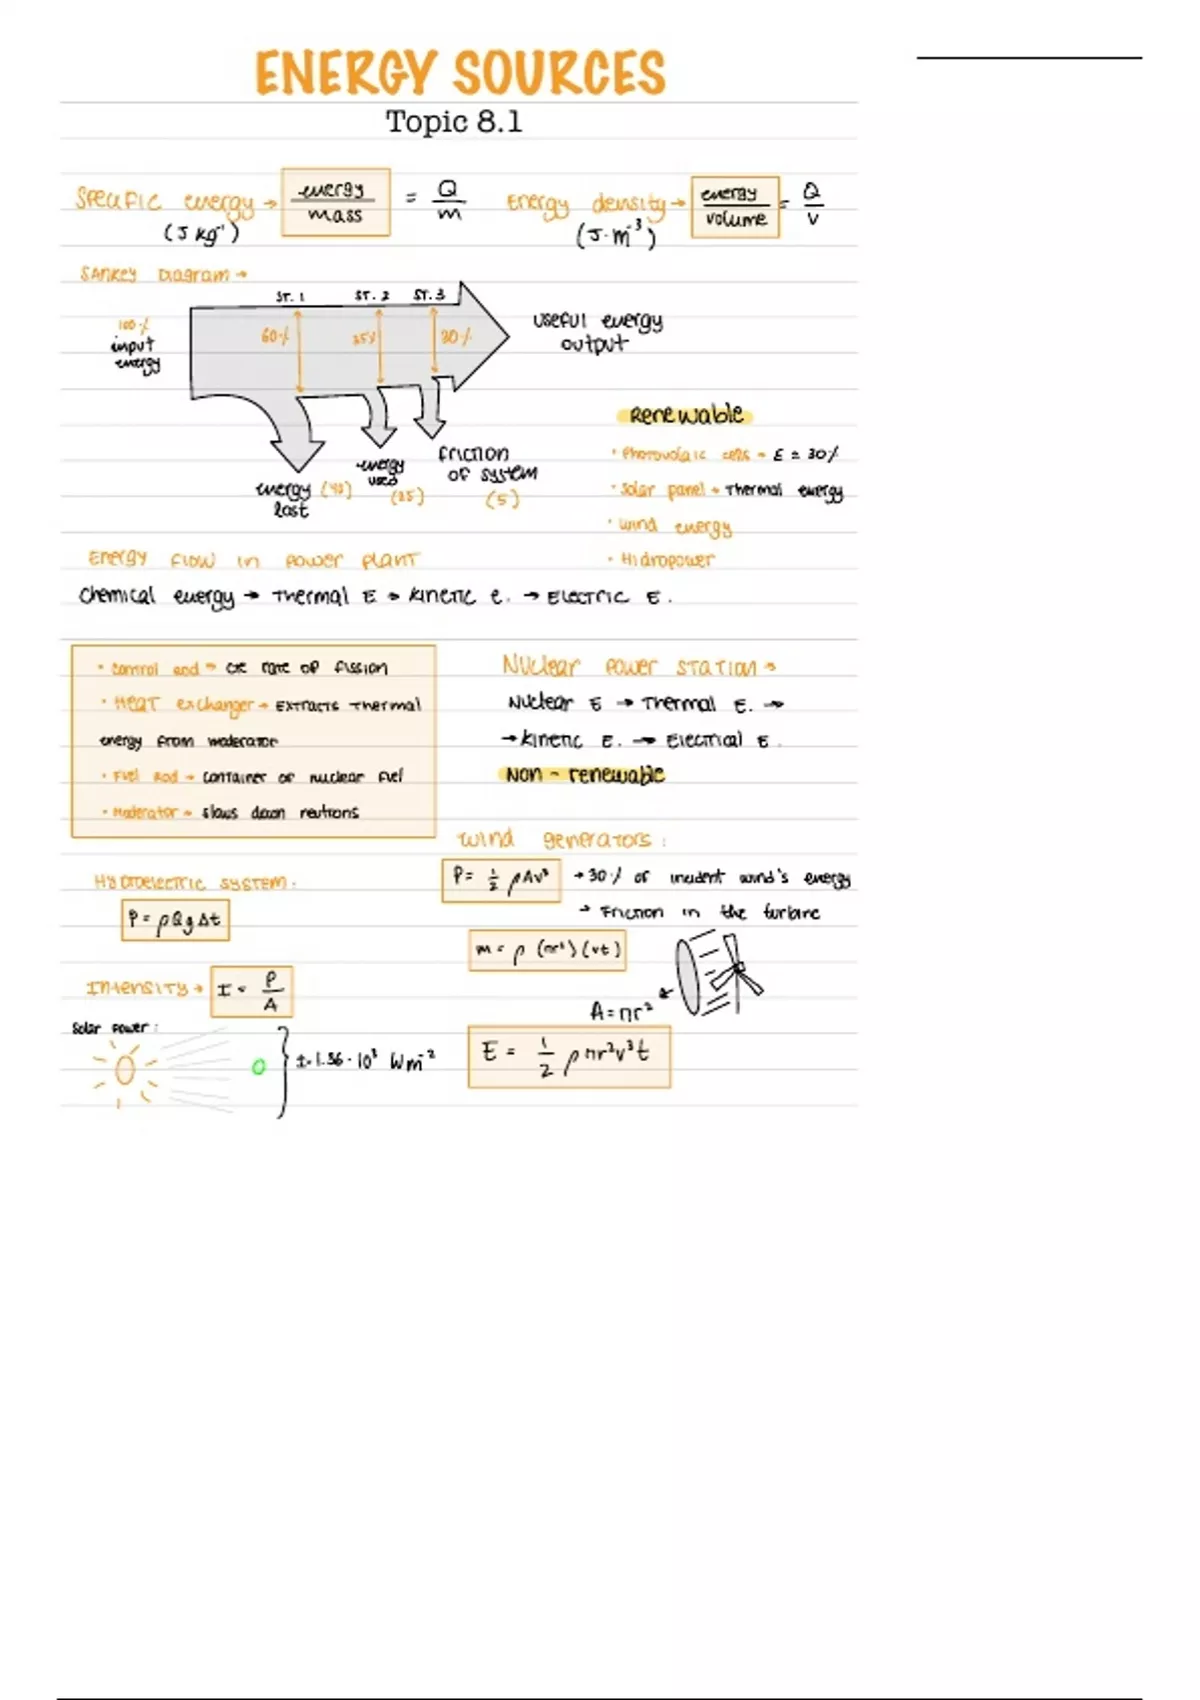 ENERGY SOURCES
Topic 8.1
Specific energy → energy / mass = Q / m
(J kg⁻¹)
Energy density → energy / volume = Q / V
(J·m⁻³)
Sankey Diagram →
ST. 1 ST. 2 ST. 3
100%
input
energy
60% 35% 30%
useful energy
output
energy (40)
lost
energy
used
(25)
friction
of system
(5)
Renewable
• Photovolaic cells → E = 30%
• Solar panel → Thermal energy
• Wind energy
• Hidropower
Energy flow in power plant
Chemical energy → Thermal E → Kinetic e. → Electric E.
• Control rod → rate of fission
• Heat exchanger → Extracts thermal
energy from moderator
• Fuel Rod → container of nuclear fuel
• Moderator → slows down neutrons
Nuclear power station →
Nuclear E → Thermal E. →
→ Kinetic E. → Electrical E.
Non - renewable
Wind generators:
P = 1/2 ρAv³ → 30% of incident wind's energy
→ Friction in the turbine
m = ρ (πr²)(vt)
A = πr²
E = 1/2 ρπr²v³t
Hydroelectric system:
P = ρQgΔt
Intensity → I = P / A
Solar power:
I = 1.36 · 10³ Wm⁻²